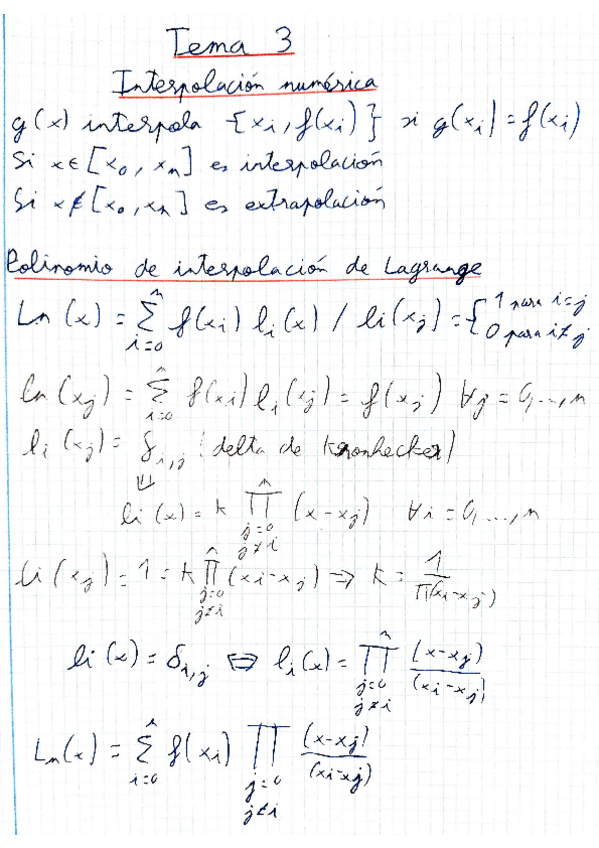 Tema 3
Interpolación numérica
g(x) interpola {xi, f(xi)} si g(xi) = f(xi)
Si x ∈ [x₀, xn] es interpolación
Si x ∉ [x₀, xn] es extrapolación
Polinomio de interpolación de Lagrange
Ln(x) = ∑_{i=0}^{n} f(xi) li(x) / li(xj) = { 1 para i=j 0 para i≠j
Ln(xj) = ∑_{i=0}^{n} f(xi) li(xj) = f(xj) ∀j = 0,...,n
li(xj) = δi,j (delta de Kronhecker)
⇓
li(x) = k ∏_{j=0 j≠i}^{n} (x-xj) ∀i = 0,...,n
li(xj) = 1 = k ∏_{j=0 j≠i}^{n} (xi-xj) ⇒ k = 1/∏(xi-xj)
li(x) = δi,j ⇔ li(x) = ∏_{j=0 j≠i}^{n} (x-xj)/(xi-xj)
Ln(x) = ∑_{i=0}^{n} f(xi) ∏_{j=0 j≠i} (x-xj)/(xi-xj)